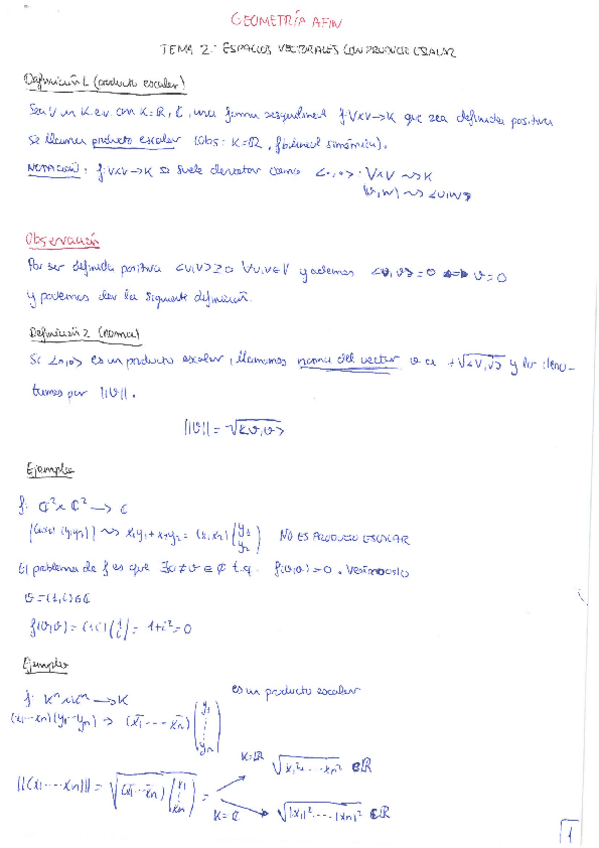 GEOMETRÍA AFIN
TEMA 2: ESPACIOS VECTORIALES CON PRODUCTO ESCALAR
Definición 1 (producto escalar)
Sea V un K e.v. con K=ℝ, ℂ, una forma sesquilineal f: V×V→K que sea definida positiva
se llama producto escalar (Obs: K=ℝ, f bilineal simétrica).
NOTACIÓN: f: V×V→K se suele denotar como <·,·>: V×V ⇝ K
(v,w) ⇝ <v,w>
Observación
Por ser definida positiva <v,v> ≥ 0 ∀v,v∈V y además <v,v> = 0 ⟺ v=0
y podemos dar la siguiente definición.
Definición 2 (norma)
Si <·,·> es un producto escalar, llamamos norma del vector v a +√<v,v> y lo deno-
tamos por ||v||.
||v|| = √<v,v>
Ejemplo
f: ℂ²×ℂ² → ℂ
⇝ x₁y₁ + x₂y₂ = (x₁ x₂) (y₁ y₂) NO ES PRODUCTO ESCALAR
El problema de f es que ∃ 0≠v ∈ ℂ t.q. f(v,v) = 0. Veámoslo
v=(1,i)∈ℂ
f(v,v) = (1 i) (1 i) = 1+i² = 0
Ejemplo
f: Kⁿ×Kⁿ → K es un producto escalar
(x₁ ··· xₙ)(y₁ ··· yₙ) → (x̄₁ ··· x̄ₙ) (y₁ ⋮ yₙ)
||(x₁ ··· xₙ)|| = √(x̄₁ ··· x̄ₙ)(x₁ ⋮ xₙ) =
K=ℝ √x₁² ··· xₙ² ∈ℝ
K=ℂ √|x₁|² ··· |xₙ|² ∈ℝ
1